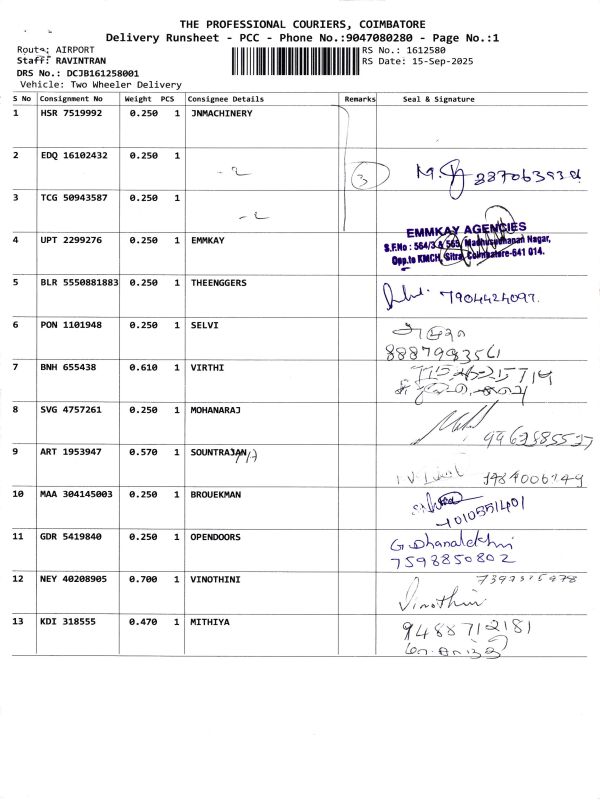 THE PROFESSIONAL COURIERS, COIMBATORE
Delivery Runsheet - PCC - Phone No.:9047080280 - Page No.:1
Route: AIRPORT
RS No.: 1612580
Staff: RAVINTRAN
RS Date: 15-Sep-2025
DRS No.: DCJB161258001
Vehicle: Two Wheeler Delivery
S No Consignment No Weight PCS Consignee Details Remarks Seal & Signature
1 HSR 7519992 0.250 1 JNMACHINERY
2 EDQ 16102432 0.250 1
3
3 TCG 50943587 0.250 1
EMMKAY AGENCIES
4 UPT 2299276 0.250 1 EMMKAY
S.F.No : 564/3 & 565, Madhusudhanan Nagar,
Opp.to KMCH, Sitra, Coimbatore-641 014.
5 BLR 5550881883 0.250 1 THEENGGERS
7904424097.
6 PON 1101948 0.250 1 SELVI
8887983561
7 BNH 655438 0.610 1 VIRTHI
8 SVG 4757261 0.250 1 MOHANARAJ
9 ART 1953947 0.570 1 SOUNTRAJAN
10 MAA 304145003 0.250 1 BROUEKMAN
11 GDR 5419840 0.250 1 OPENDOORS
7598850802
12 NEY 40208905 0.700 1 VINOTHINI
Vinothini
13 KDI 318555 0.470 1 MITHIYA
9488712181